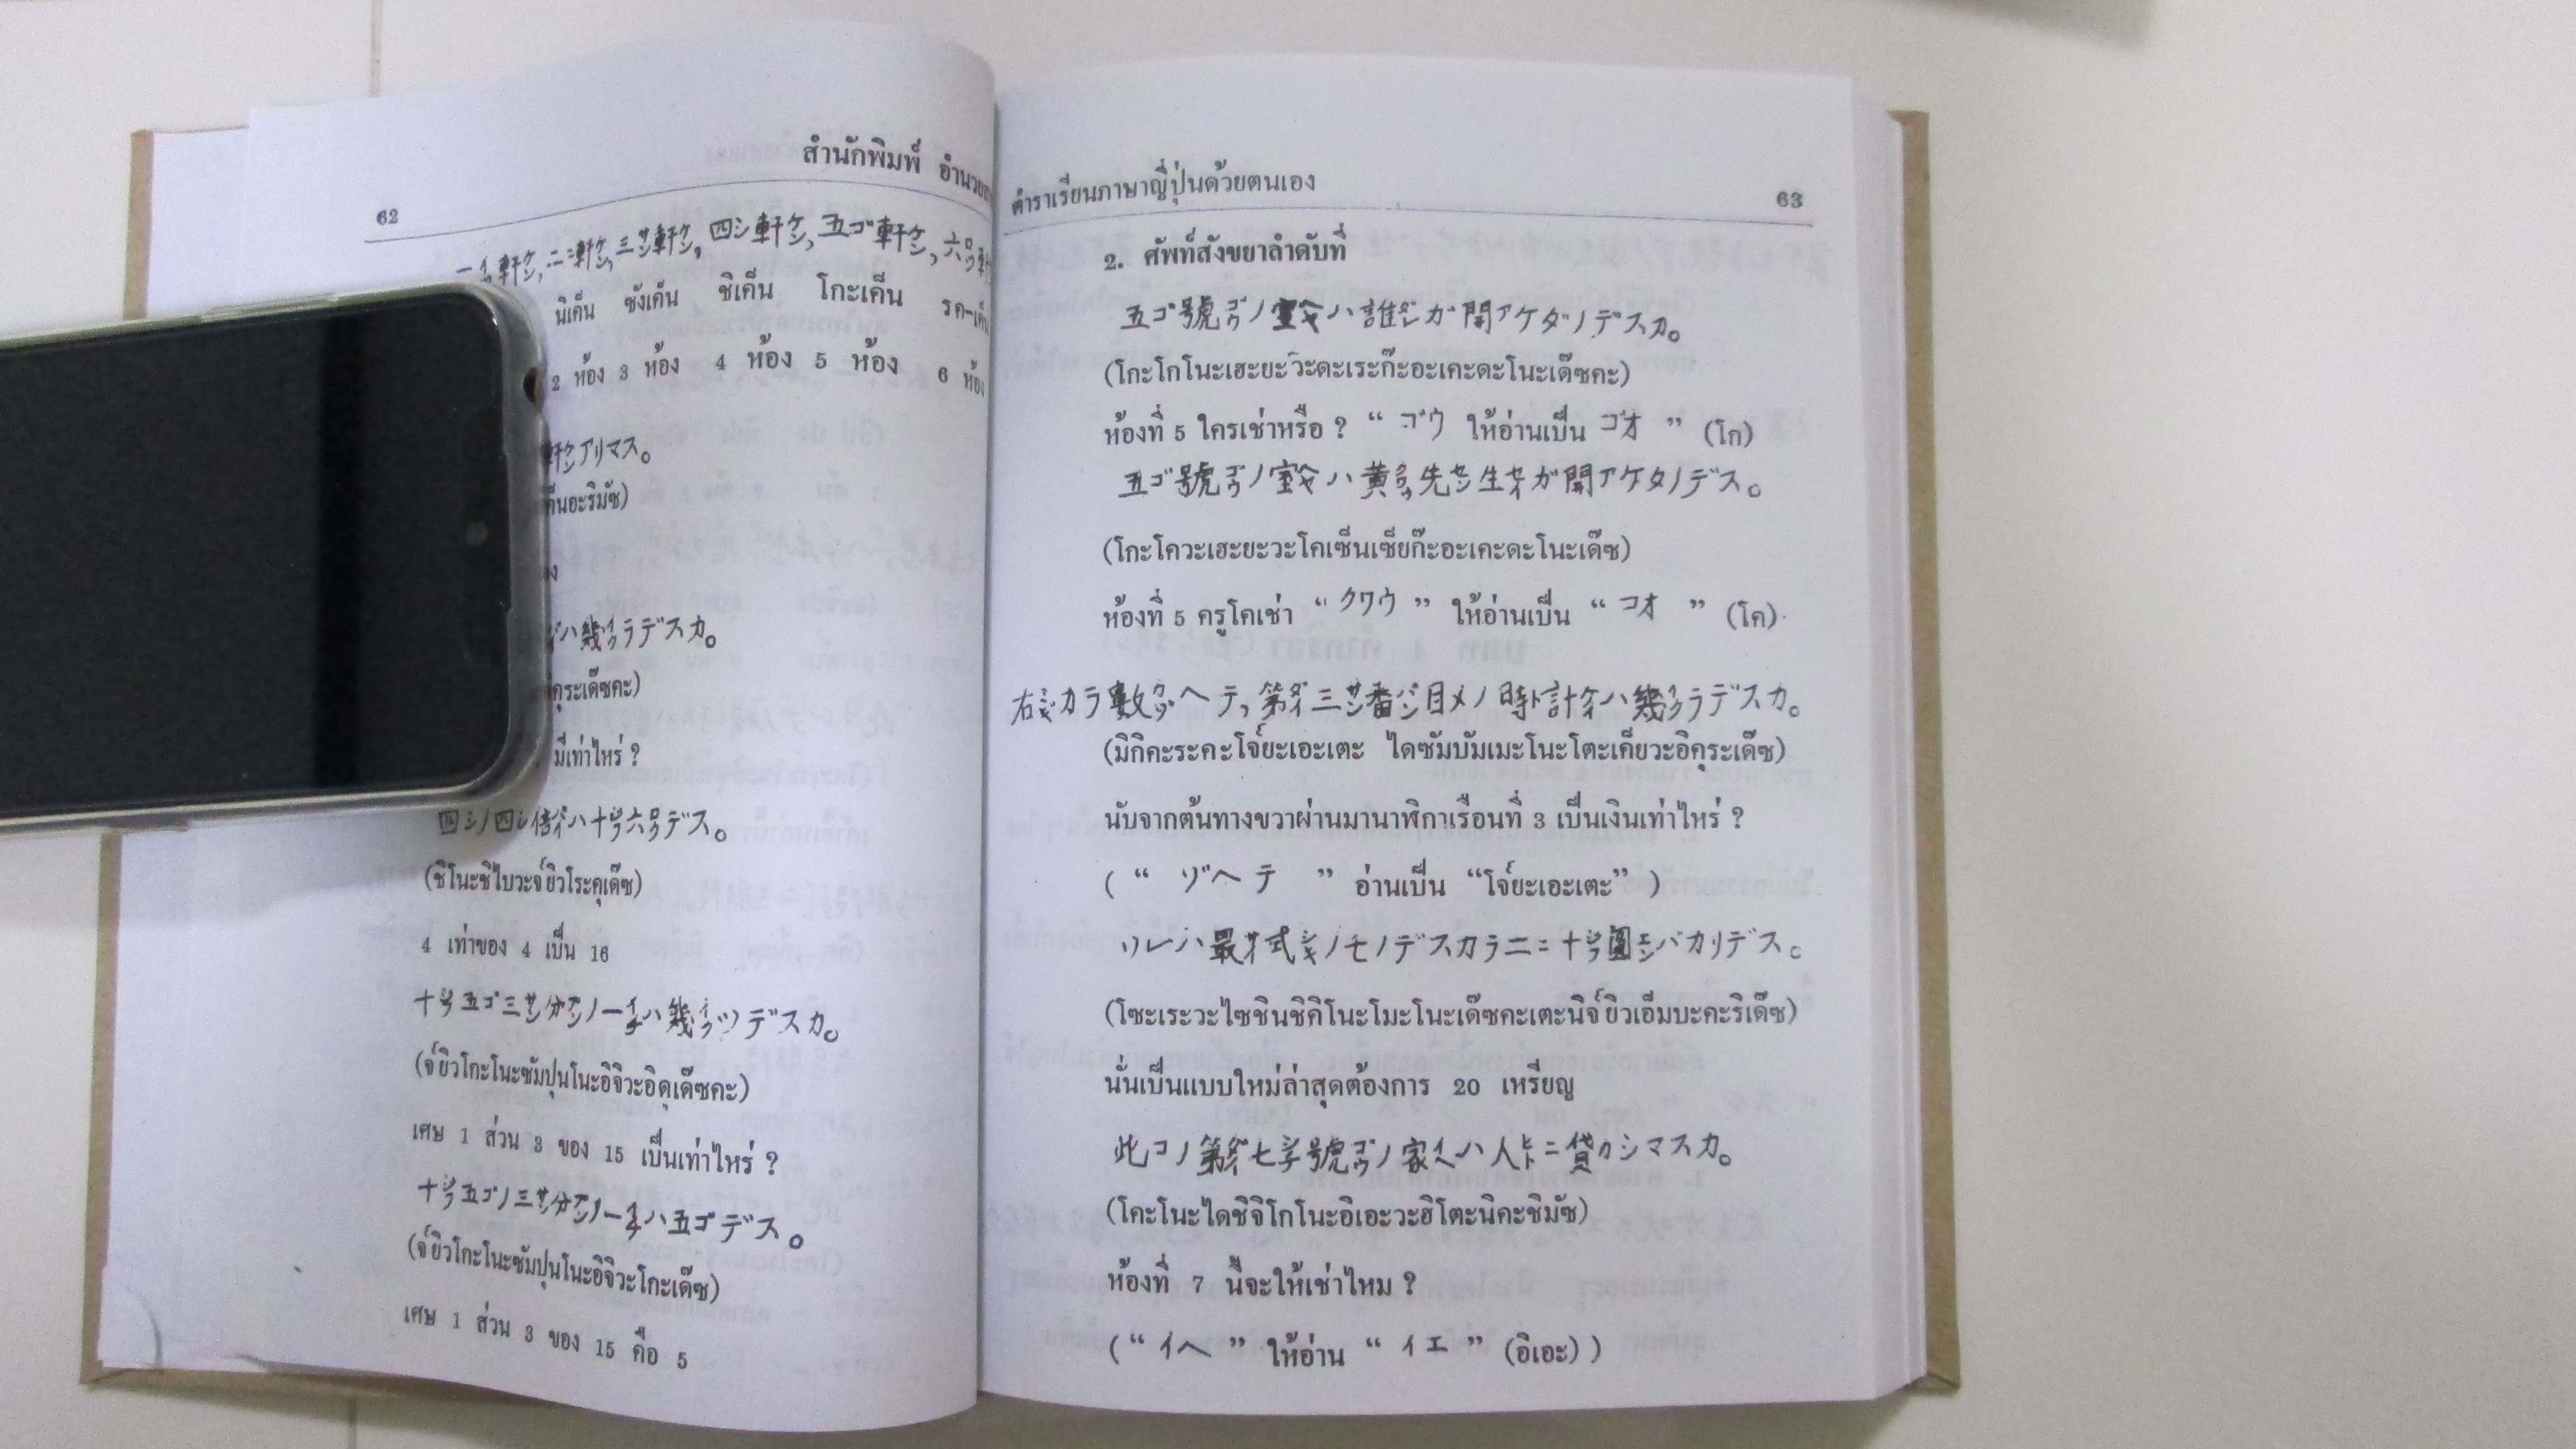 สำนักพิมพ์ อำนวย
62
一イチ軒ケン, 二ニ軒ケン, 三サン軒ケン, 四シ軒ケン, 五ゴ軒ケン, 六ロク軒
นิเค็น ซังเค็น ชิเค็น โกะเค็น รค-เค็น
2 ห้อง 3 ห้อง 4 ห้อง 5 ห้อง 6 ห้อง
軒ケンアリマス。
ค็นอะริมัซ)
ハ幾イクラデスカ。
คุระเด๊ซคะ)
มีเท่าไหร่ ?
四シノ四シ倍バイハ十ジフ六ロクデス。
(ชิโนะชิไบวะจ์ยิวโระคุเด๊ซ)
4 เท่าของ 4 เป็น 16
十ジフ五ゴ三サン分ブンノ一イチハ幾イクツデスカ。
(จ์ยิวโกะโนะซัมปุนโนะอิจิวะอิดุเด๊ซคะ)
เศษ 1 ส่วน 3 ของ 15 เป็นเท่าไหร่ ?
十ジフ五ゴノ三サン分ブンノ一イチハ五ゴデス。
(จ์ยิวโกะโนะซัมปุนโนะอิจิวะโกะเด๊ซ)
เศษ 1 ส่วน 3 ของ 15 คือ 5
ตำราเรียนภาษาญี่ปุ่นด้วยตนเอง
63
2. ศัพท์สังขยาลำดับที่
五ゴ號ゴウノ室ヘヤハ誰ダレガ開アケダノデスカ。
(โกะโกโนะเฮะยะว๊ะดะเระก๊ะอะเคะดะโนะเด๊ซคะ)
ห้องที่ 5 ใครเช่าหรือ ? “ ゴウ ให้อ่านเป็น ゴオ ” (โก)
五ゴ號ゴウノ室ヘヤハ黄クワウ先セン生セイガ開アケタノデス。
(โกะโควะเฮะยะวะโคเซ็นเซ็ยก๊ะอะเคะดะโนะเด๊ซ)
ห้องที่ 5 ครูโคเช่า “ クワウ ” ให้อ่านเป็น “ コオ ” (โค)
右ミギカラ數カゾヘテ, 第ダイ三サン番バン目メノ時ト計ケイハ幾イクラデスカ。
(มิกิคะระคะโจ์ยะเอะเตะ ไดซัมบัมเมะโนะโตะเค็ยวะอิคุระเด๊ซ)
นับจากต้นทางขวาผ่านมานาฬิกาเรือนที่ 3 เป็นเงินเท่าไหร่ ?
( “ ゾヘテ ” อ่านเป็น “โจ์ยะเอะเตะ” )
ソレハ最サイ式シキノモノデスカラ二ニ十ジフ圓エンバカリデス。
(โซะเระวะไซชินชิคิโนะโมะโนะเด๊ซคะเตะนิจ์ยิวเอ็มบะคะริเด๊ซ)
นั่นเป็นแบบใหม่ล่าสุดต้องการ 20 เหรียญ
此コノ第ダイ七シチ號ゴウノ家イヘハ人ヒトニ貸カシマスカ。
(โคะโนะไดชิจิโกโนะอิเอะวะฮิโตะนิคะชิมัซ)
ห้องที่ 7 นี้จะให้เช่าไหม ?
( “ イヘ ” ให้อ่าน “ イエ ” (อิเอะ) )